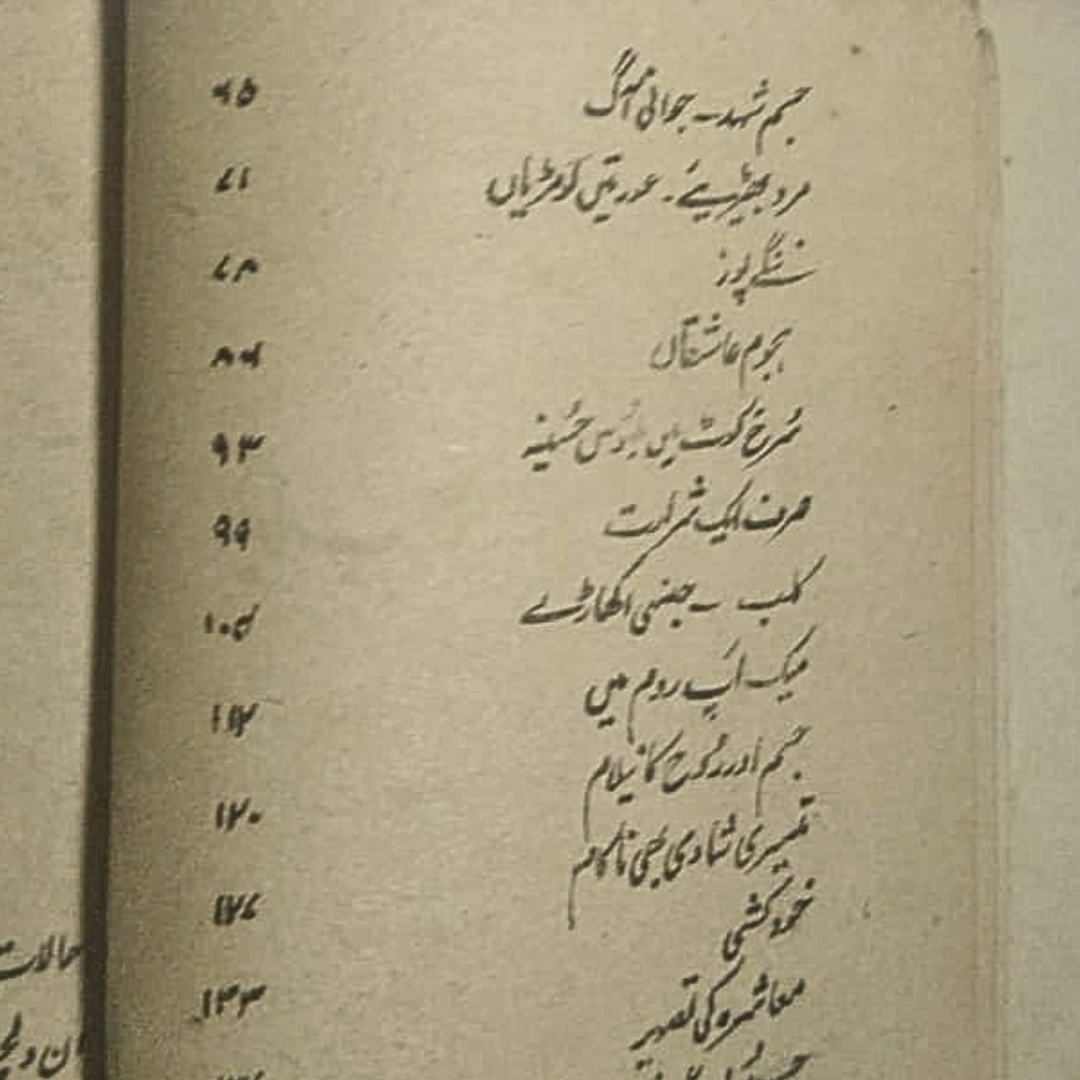 جسم شہد ـ جوانی آگ ۶۵
مرد بھیڑیئے ـ عورتیں لومڑیاں ۷۱
ننگے پوز ۷۸
ہجوم عاشقاں ۸۶
سُرخ کوٹ میں حُسینہ ۹۳
صرف ایک شرارت ۹۹
کلب ـ جنسی اکھاڑے
میک اَپ روم میں ۱۱۲
جسم اور رُوح کا نیلام ۱۲۰
تیسری شادی بھی ناکام ۱۲۷
خودکشی ۱۳۳
معاشرہ کی
حالات